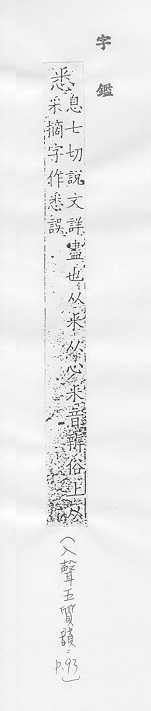 字鑑
悉
息七切說文詳盡也从釆从心釆音辨俗上从
采摘字作悉誤
(入聲五質韻：p.93)